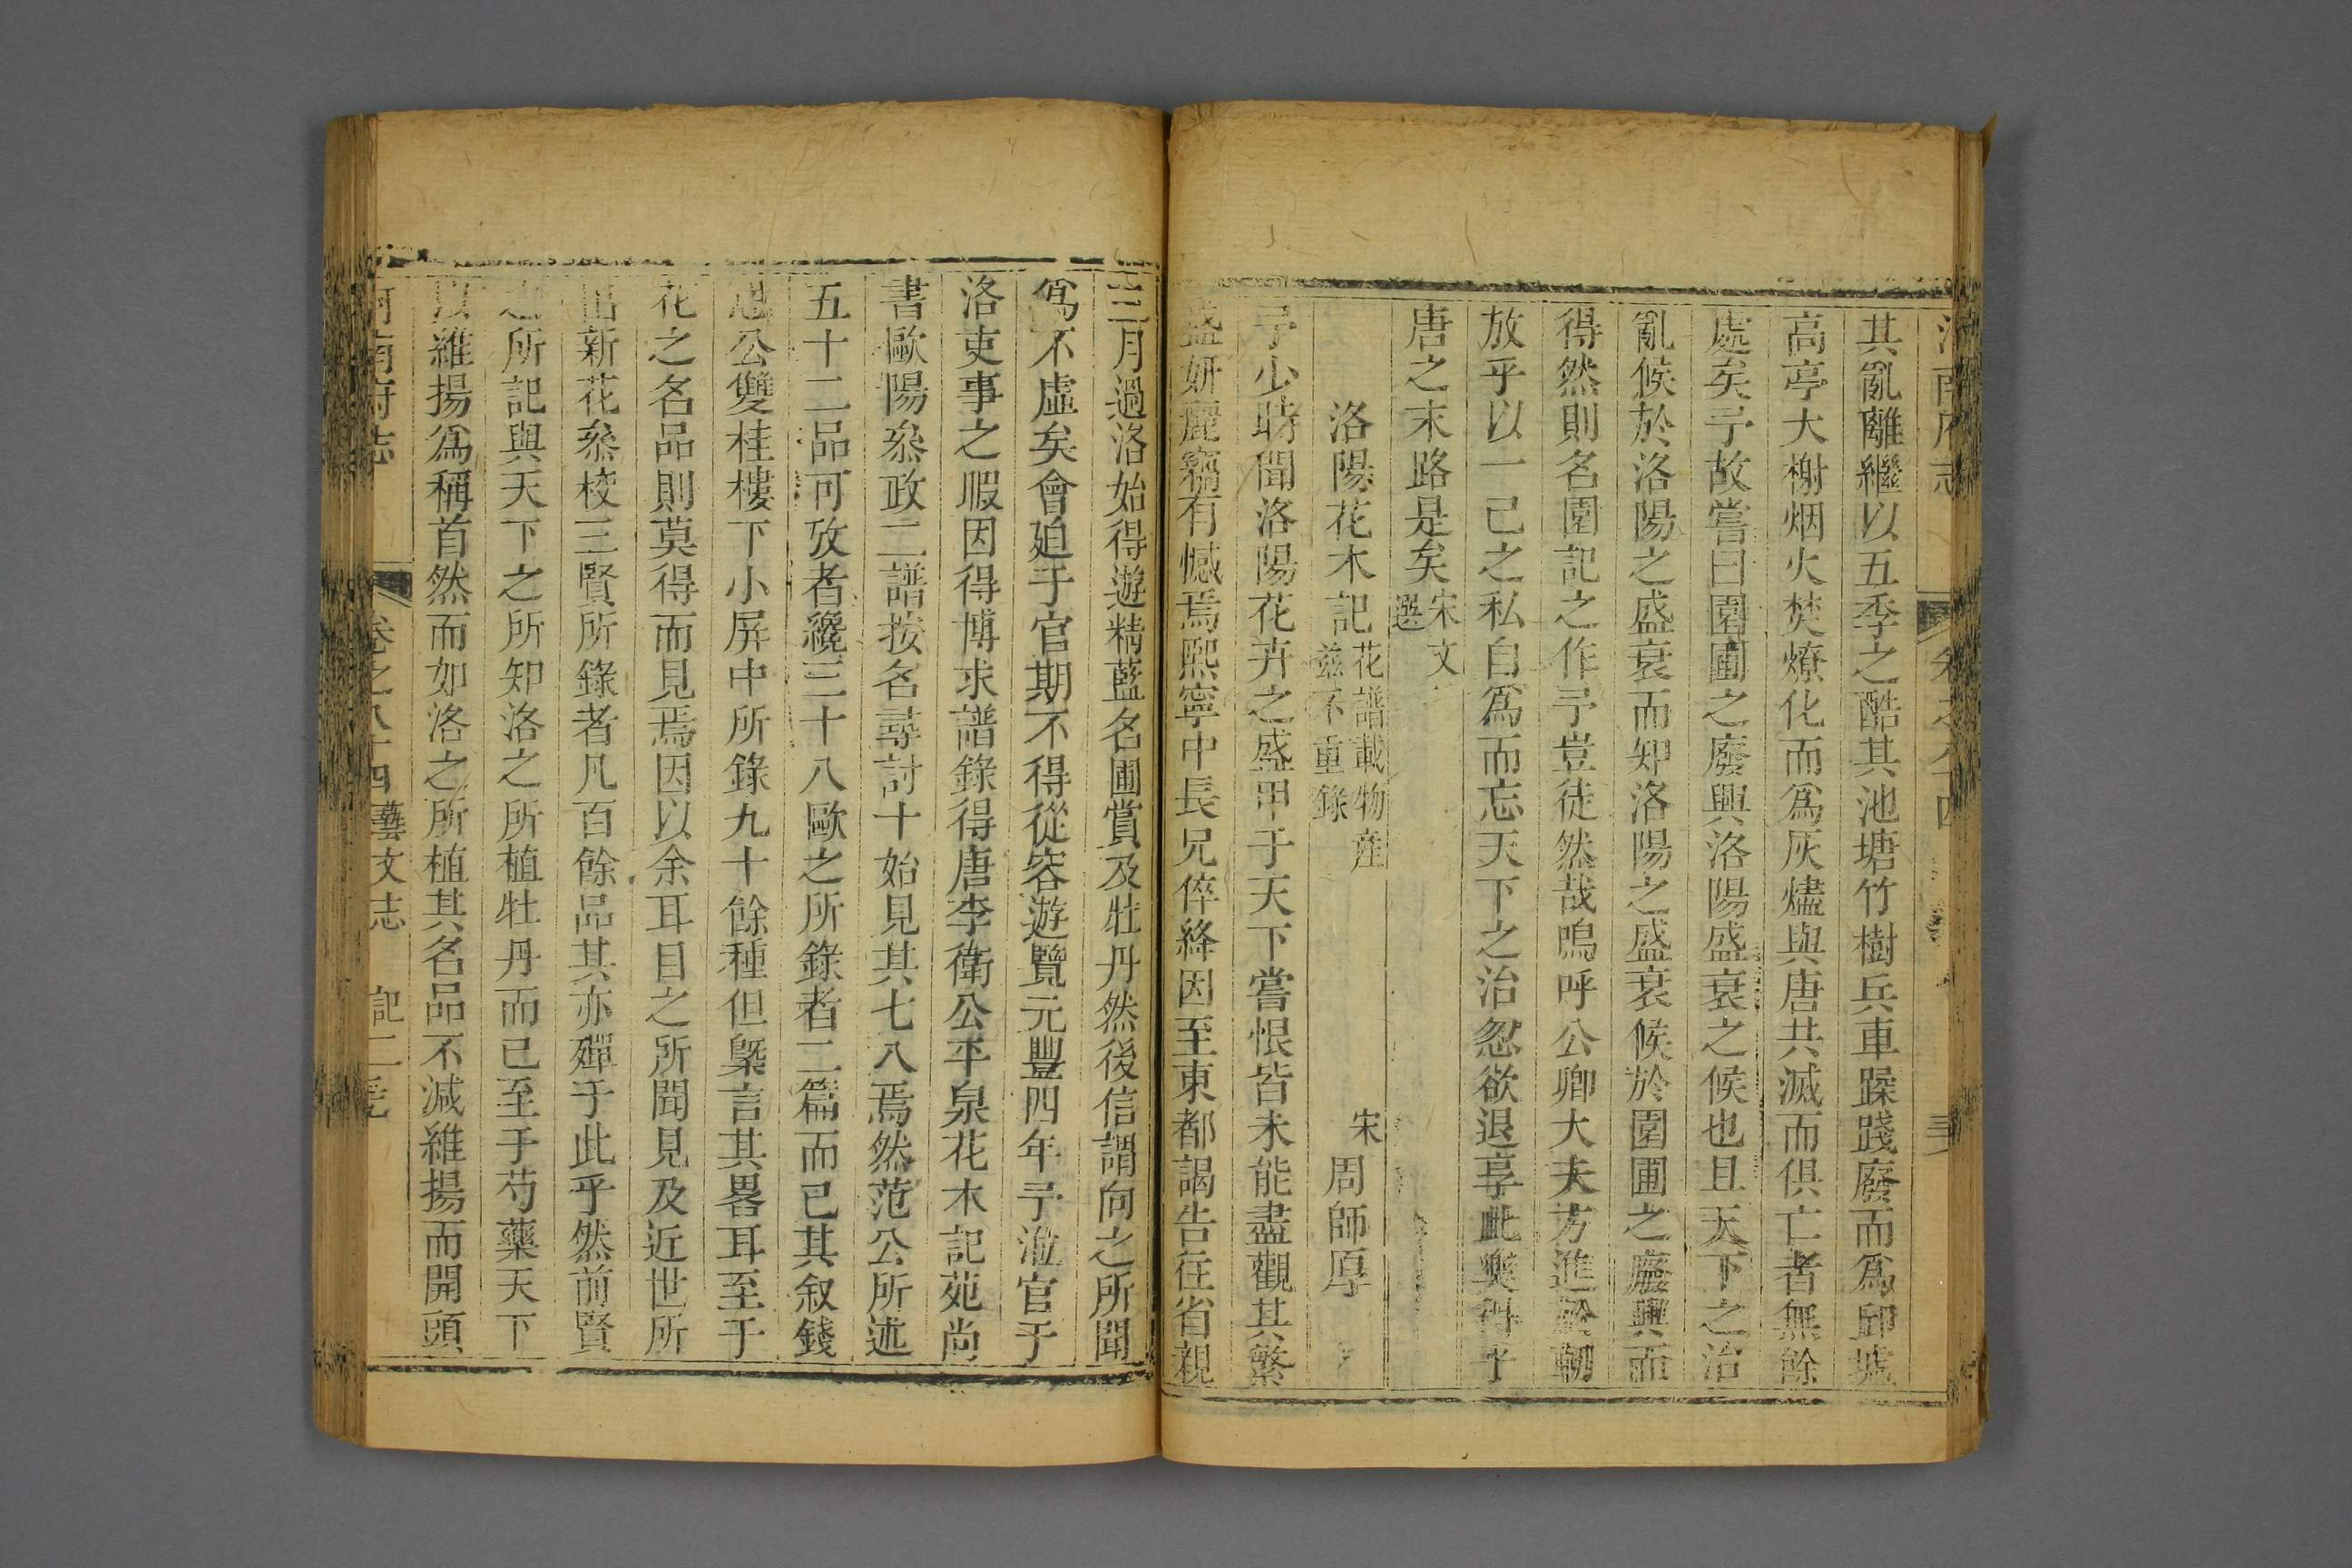 河南府志 卷之八十四
其亂離繼以五季之酷其池塘竹樹兵車蹂踐廢而爲邱墟
高亭大榭烟火焚燎化而爲灰燼與唐共滅而俱亡者無餘
處矣予故嘗曰園圃之廢興洛陽盛衰之候也且天下之治
亂候於洛陽之盛衰而知洛陽之盛衰候於園圃之廢興而
得然則名園記之作予豈徒然哉嗚呼公卿大夫方進於朝
放乎以一己之私自爲而忘天下之治忽欲退享此樂得乎
唐之末路是矣宋文選
洛陽花木記花譜載物產茲不重錄 宋周師厚
予少時聞洛陽花卉之盛甲于天下嘗恨皆未能盡觀其繁
盛妍麗竊有憾焉熙寧中長兄倅絳因至東都謁告往省親
三月過洛始得遊精藍名圃賞及牡丹然後信謂向之所聞
爲不虛矣會廹于官期不得從容遊覽元豐四年予涖官于
洛吏事之暇因得博求譜錄得唐李衛公平泉花木記范尚
書歐陽叅政二譜按名尋討十始見其七八焉然范公所述
五十二品可攷者纔三十八歐之所錄者二篇而已其叙錢
思公雙桂樓下小屏中所錄九十餘種但槩言其畧耳至于
花之名品則莫得而見焉因以余耳目之所聞見及近世所
出新花叅校三賢所錄者凡百餘品其亦殫于此乎然前賢
之所記與天下之所知洛之所植牡丹而已至于芍藥天下
以維揚爲稱首然而如洛之所植其名品不減維揚而開頭
河南府志 卷之八十四 藝文志 記二